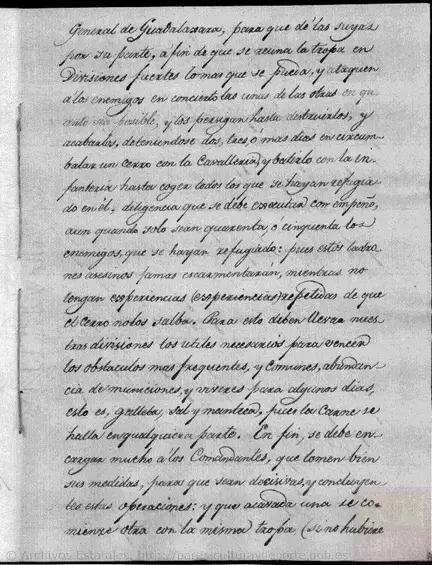 General de Guadalaxara, para que dé las suyas
por su parte, a fin de que se acuna la tropa en
Divisiones fuertes lo mas que se pueda, y ataquen
á los enemigos en concierto las unas de las otras en qu
anto sea posible, y los persigan hasta destruirlos, y
acabarlos, deteniendose dos, tres, ó mas dias en circum
balar un cerro con la Cavalleria, y batirlo con la in
fanteria hasta coger todos los que se hayan refugia
do en él. diligencia que se debe executar con empeño,
aun quando solo sean quarenta, ó cinquenta los
enemigos, que se hayan refugiado: pues estos ladro
nes asesinos jamas escarmentarán, mientras no
tengan experiencias (esperiencias) repetidas de que
el cerro no los salba. Para esto deben llevar nues
tras divisiones los utiles necesarios para vencer
los obstaculos mas frequentes, y comunes, abundan
cia de municiones, y viveres para algunos dias,
esto es, galleta, sal y manteca, pues la Carne se
halla en qualquiera parte. En fin, se debe en
cargar mucho á los Comandantes, que tomen bien
sus medidas, para que sean decisivas, y concluyen
tes estas operaciones: y que acavada una se co
mienze otra con la misma tropa (si no hubiere
© Archivos Estatales, http://pares.culturaydeporte.gob.es